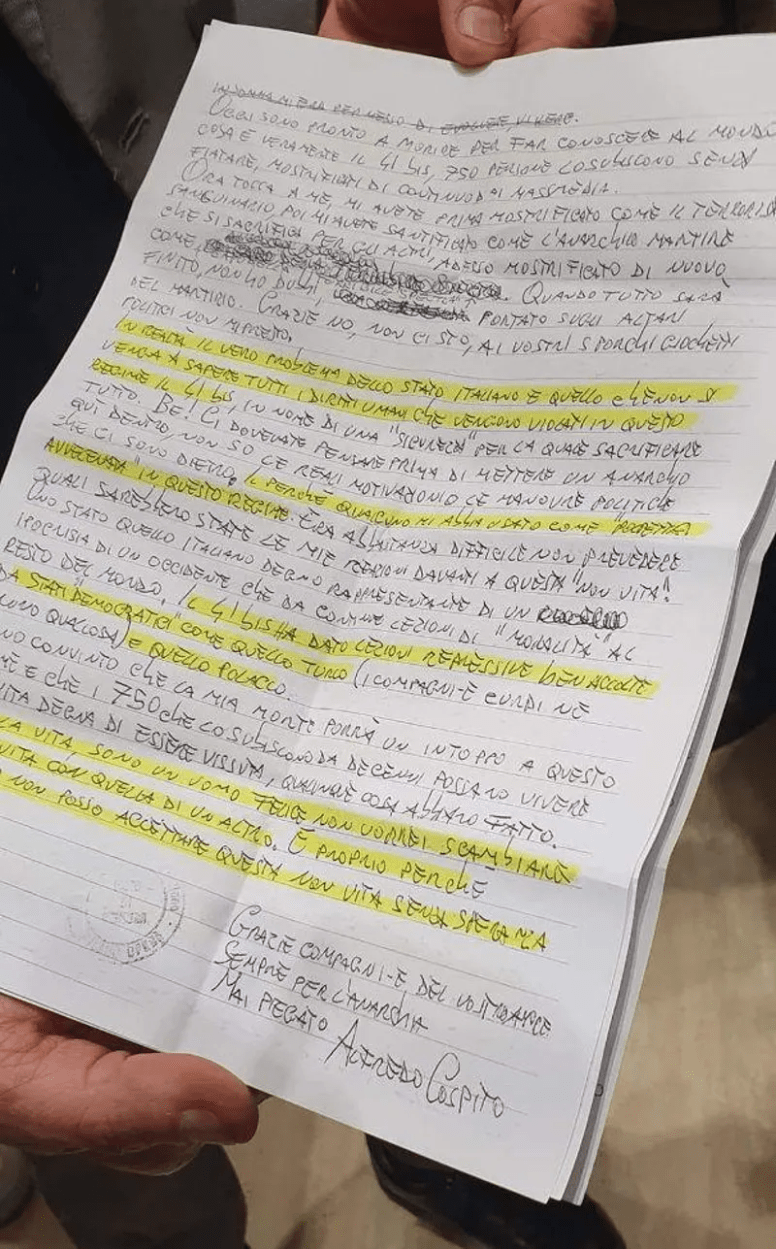 INSOMMA MI ERA PERMESSO DI EVOLVERE, VIVERE.
OGGI SONO PRONTO A MORIRE PER FAR CONOSCERE AL MONDO
COSA È VERAMENTE IL 41 BIS, 750 PERSONE LO SUBISCONO SENZA
FIATARE, MOSTRIFICATI DI CONTINUO DAI MASSMEDIA.
ORA TOCCA A ME, MI AVETE PRIMA MOSTRIFICATO COME IL TERRORISTA
SANGUINARIO, POI MI AVETE SANTIFICATO COME L'ANARCHICO MARTIRE
CHE SI SACRIFICA PER GLI ALTRI, ADESSO MOSTRIFICATO DI NUOVO
COME, . QUANDO TUTTO SARÀ
FINITO, NON HO DUBBI, PORTATO SUGLI ALTARI
DEL MARTIRIO. GRAZIE NO, NON CI STO, AI VOSTRI SPORCHI GIOCHETTI
POLITICI NON MI PRESTO.
IN REALTÀ IL VERO PROBLEMA DELLO STATO ITALIANO È QUELLO CHE NON SI
VENGA A SAPERE TUTTI I DIRITTI UMANI CHE VENGONO VIOLATI IN QUESTO
REGIME IL 41 BIS, IN NOME DI UNA "SICUREZZA" PER LA QUALE SACRIFICARE
TUTTO. BE! CI DOVEVATE PENSARE PRIMA DI METTERE UN ANARCHICO
QUI DENTRO, NON SO LE REALI MOTIVAZIONI O LE MANOVRE POLITICHE
CHE CI SONO DIETRO. IL PERCHÈ QUALCUNO MI ABBIA USATO COME "POLPETTA
AVVELENATA" IN QUESTO REGIME. ERA ABBASTANZA DIFFICILE NON PREVEDERE
QUALI SAREBBERO STATE LE MIE REAZIONI DAVANTI A QUESTA "NON VITA".
UNO STATO QUELLO ITALIANO DEGNO RAPPRESENTANTE DI UN
IPOCRISIA DI UN OCCIDENTE CHE DA CONTINUE LEZIONI DI "MORALITÀ" AL
RESTO DEL MONDO. IL 41 BIS HA DATO LEZIONI REPRESSIVE BEN ACCOLTE
DA STATI "DEMOCRATICI" COME QUELLO TURCO (I COMPAGNI-E CURDI NE
QUALCOSA) E QUELLO POLACCO.
CONVINTO CHE LA MIA MORTE PORRÀ UN INTOPPO A QUESTO
E CHE I 750 CHE LO SUBISCONO DA DECENNI POSSANO VIVERE
VITA DEGNA DI ESSERE VISSUTA, QUALUNQUE COSA ABBIANO FATTO.
LA VITA, SONO UN UOMO FELICE NON VORREI SCAMBIARE
VITA CON QUELLA DI UN ALTRO. È PROPRIO PERCHÈ
NON POSSO ACCETTARE QUESTA NON VITA SENZA SPERANZA
GRAZIE COMPAGNI-E DEL VOSTRO AMORE
SEMPRE PER L'ANARCHIA
MAI PIEGATO ALFREDO COSPITO